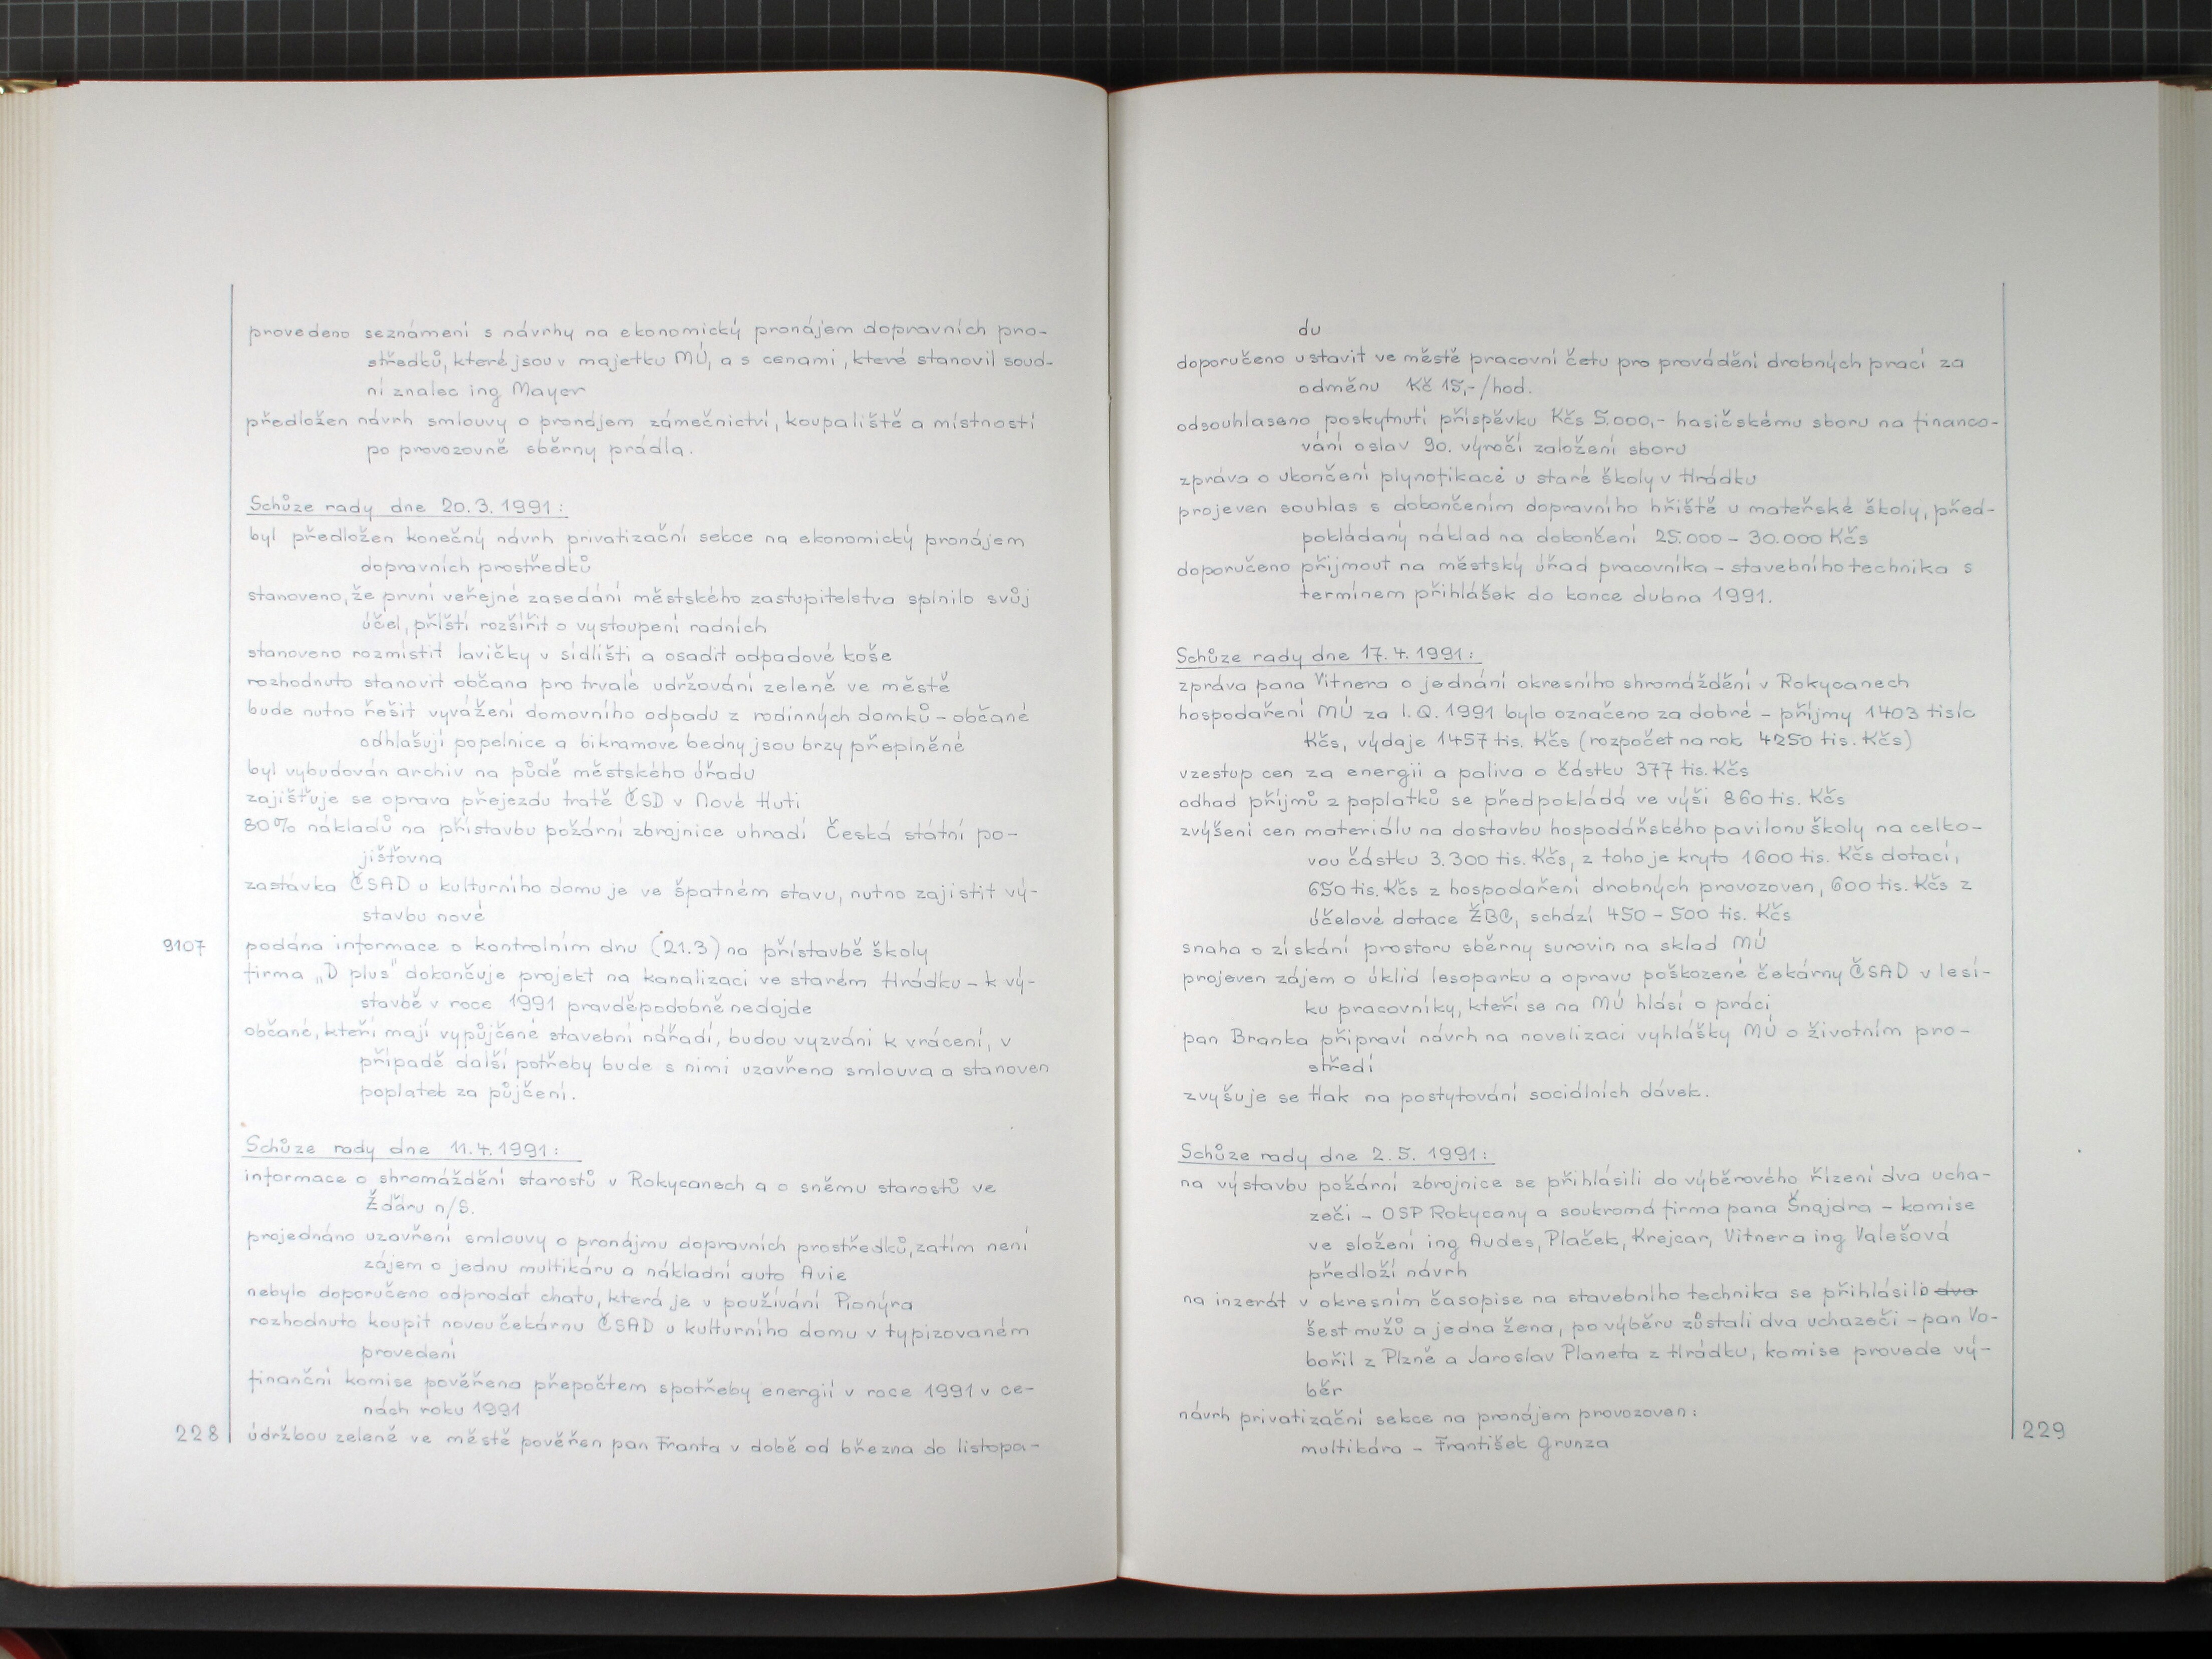 provedeno seznámení s návrhy na ekonomický pronájem dopravních pro-
středků, které jsou v majetku MÚ, a s cenami, které stanovil soud-
ní znalec ing Mayer
předložen návrh smlouvy o pronájem zámečnictví, koupaliště a místností
po provozovně sběrny prádla.
Schůze rady dne 20.3.1991:
byl předložen konečný návrh privatizační sekce na ekonomický pronájem
dopravních prostředků
stanoveno, že první veřejné zasedání městského zastupitelstva splnilo svůj
účel, příští rozšířit o vystoupení radních
stanoveno rozmístit lavičky v sídlišti a osadit odpadové koše
rozhodnuto stanovit občana pro trvalé udržování zeleně ve městě
bude nutno řešit vyvážení domovního odpadu z rodinných domků – občané
odhlašují popelnice a bikramove bedny jsou brzy přeplněné
byl vybudován archiv na půdě městského úřadu
zajišťuje se oprava přejezdu tratě ČSD v Nové Huti
80% nákladů na přístavbu požární zbrojnice uhradí Česká státní po-
jišťovna
zastávka ČSAD u kulturního domu je ve špatném stavu, nutno zajistit vý-
stavbu nové
9107 podána informace o kontrolním dnu (21.3) na přístavbě školy
firma „D plus" dokončuje projekt na kanalizaci ve starém Hrádku – k vý-
stavbě v roce 1991 pravděpodobně nedojde
občané, kteří mají vypůjčené stavební nářadí, budou vyzváni k vrácení, v
případě další potřeby bude s nimi uzavřena smlouva a stanoven
poplatek za půjčení.
Schůze rady dne 11.4.1991:
informace o shromáždění starostů v Rokycanech a o sněmu starostů ve
Žďáru n/S.
projednáno uzavření smlouvy o pronájmu dopravních prostředků, zatím není
zájem o jednu multikáru a nákladní auto Avie
nebylo doporučeno odprodat chatu, která je v používání Pionýra
rozhodnuto koupit novou čekárnu ČSAD u kulturního domu v typizovaném
provedení
finanční komise pověřena přepočtem spotřeby energií v roce 1991 v ce-
nách roku 1991
228 údržbou zeleně ve městě pověřen pan Franta v době od března do listopa-
du
doporučeno ustavit ve městě pracovní četu pro provádění drobných prací za
odměnu Kč 15,-/hod.
odsouhlaseno poskytnutí příspěvku Kčs 5.000,- hasičskému sboru na financo-
vání oslav 90. výročí založení sboru
zpráva o ukončení plynofikace u staré školy v Hrádku
projeven souhlas s dokončením dopravního hřiště u mateřské školy, před-
pokládaný náklad na dokončení 25.000 – 30.000 Kčs
doporučeno přijmout na městský úřad pracovníka – stavebního technika s
termínem přihlášek do konce dubna 1991.
Schůze rady dne 17.4.1991:
zpráva pana Vitnera o jednání okresního shromáždění v Rokycanech
hospodaření MÚ za I.Q. 1991 bylo označeno za dobré – příjmy 1403 tisíc
Kčs, výdaje 1457 tis. Kčs (rozpočet na rok 4250 tis. Kčs)
vzestup cen za energii a paliva o částku 377 tis. Kčs
odhad příjmů z poplatků se předpokládá ve výši 860 tis. Kčs
zvýšení cen materiálu na dostavbu hospodářského pavilonu školy na celko-
vou částku 3.300 tis. Kčs, z toho je kryto 1600 tis. Kčs dotací,
650 tis. Kčs z hospodaření drobných provozoven, 600 tis. Kčs z
účelové dotace ŽBC, schází 450 – 500 tis. Kčs
snaha o získání prostoru sběrny surovin na sklad MÚ
projeven zájem o úklid lesoparku a opravu poškozené čekárny ČSAD v lesí-
ku pracovníky, kteří se na MÚ hlásí o práci
pan Branka připraví návrh na novelizaci vyhlášky MÚ o životním pro-
středí
zvyšuje se tlak na poskytování sociálních dávek.
Schůze rady dne 2.5.1991:
na výstavbu požární zbrojnice se přihlásili do výběrového řízení dva ucha-
zeči – OSP Rokycany a soukromá firma pana Šnajdra – komise
ve složení ing Audes, Plaček, Krejcar, Vitner a ing Valešová
předloží návrh
na inzerát v okresním časopise na stavebního technika se přihlásilo dva
šest mužů a jedna žena, po výběru zůstali dva uchazeči – pan Vo-
bořil z Plzně a Jaroslav Planeta z Hrádku, komise provede vý-
běr
návrh privatizační sekce na pronájem provozoven:
multikára – František Grunza
229